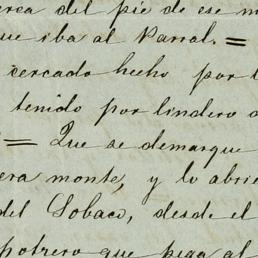 erca del pie de ese m
que iba al Parral. =
cercado hecho por l
tenido por lindero
= Que se demarque
era monte, y lo abrie
del Sobaco, desde el
potrero que pega al